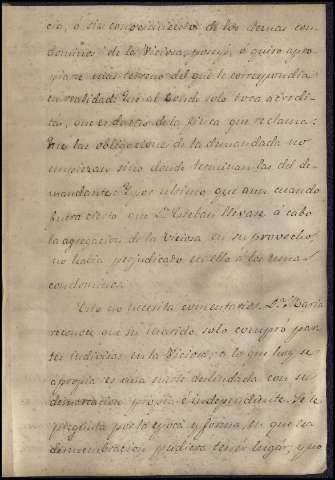 cia, ó sin conocimiento de los demas con-
dominos de la Viciosa, poseyó, ó quiso apro-
piarse mas terreno del que le correspondia
en realidad: Que al Conde solo toca acredi-
tar, que es dueño de la finca que reclama:
Que las obligaciones de la demandada no
empiezan sino donde terminan las del de-
mandante: Y por ultimo que aun cuando
fuera cierto que Dn. Esteban llevase á cabo
la agregacion de la Viciosa en su provecho
no habia perjudicado en ello á los demas
condominos.
Esto no necesita comentarios. Da. Maria
reconoce que su marido solo compró par-
tes indivisas en la Viciosa, y lo que hoy se
apropia es una suerte deslindada con su
demarcacion propia é independiente. Se le
pregunta por la epoca y forma, en que esa
desmembracion pudiera tener lugar, y no